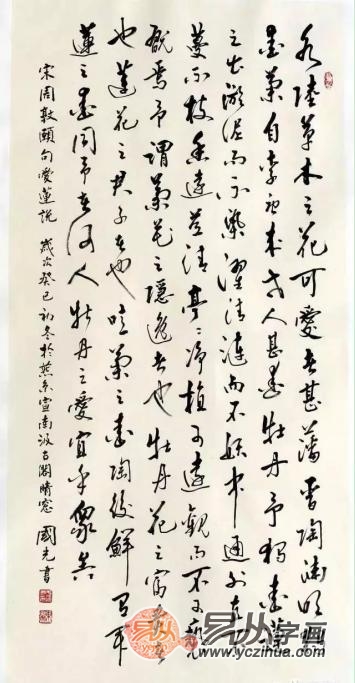 水陸草木之花可愛者甚蕃晉陶淵明獨
愛菊自李唐來世人甚愛牡丹予獨愛蓮
之出淤泥而不染濯清漣而不妖中通外直不
蔓不枝香遠益清亭〻淨植可遠觀而不可褻
翫焉予謂菊花之隱逸者也牡丹花之富貴者
也蓮花之君子者也噫菊之愛陶後鮮有聞
蓮之愛同予者何人牡丹之愛宜乎衆矣
宋周敦頤句愛蓮說 歲次癸巳初冬於燕京宣南汲古閣晴窗 國光書
易从字画
www.yczihua.com